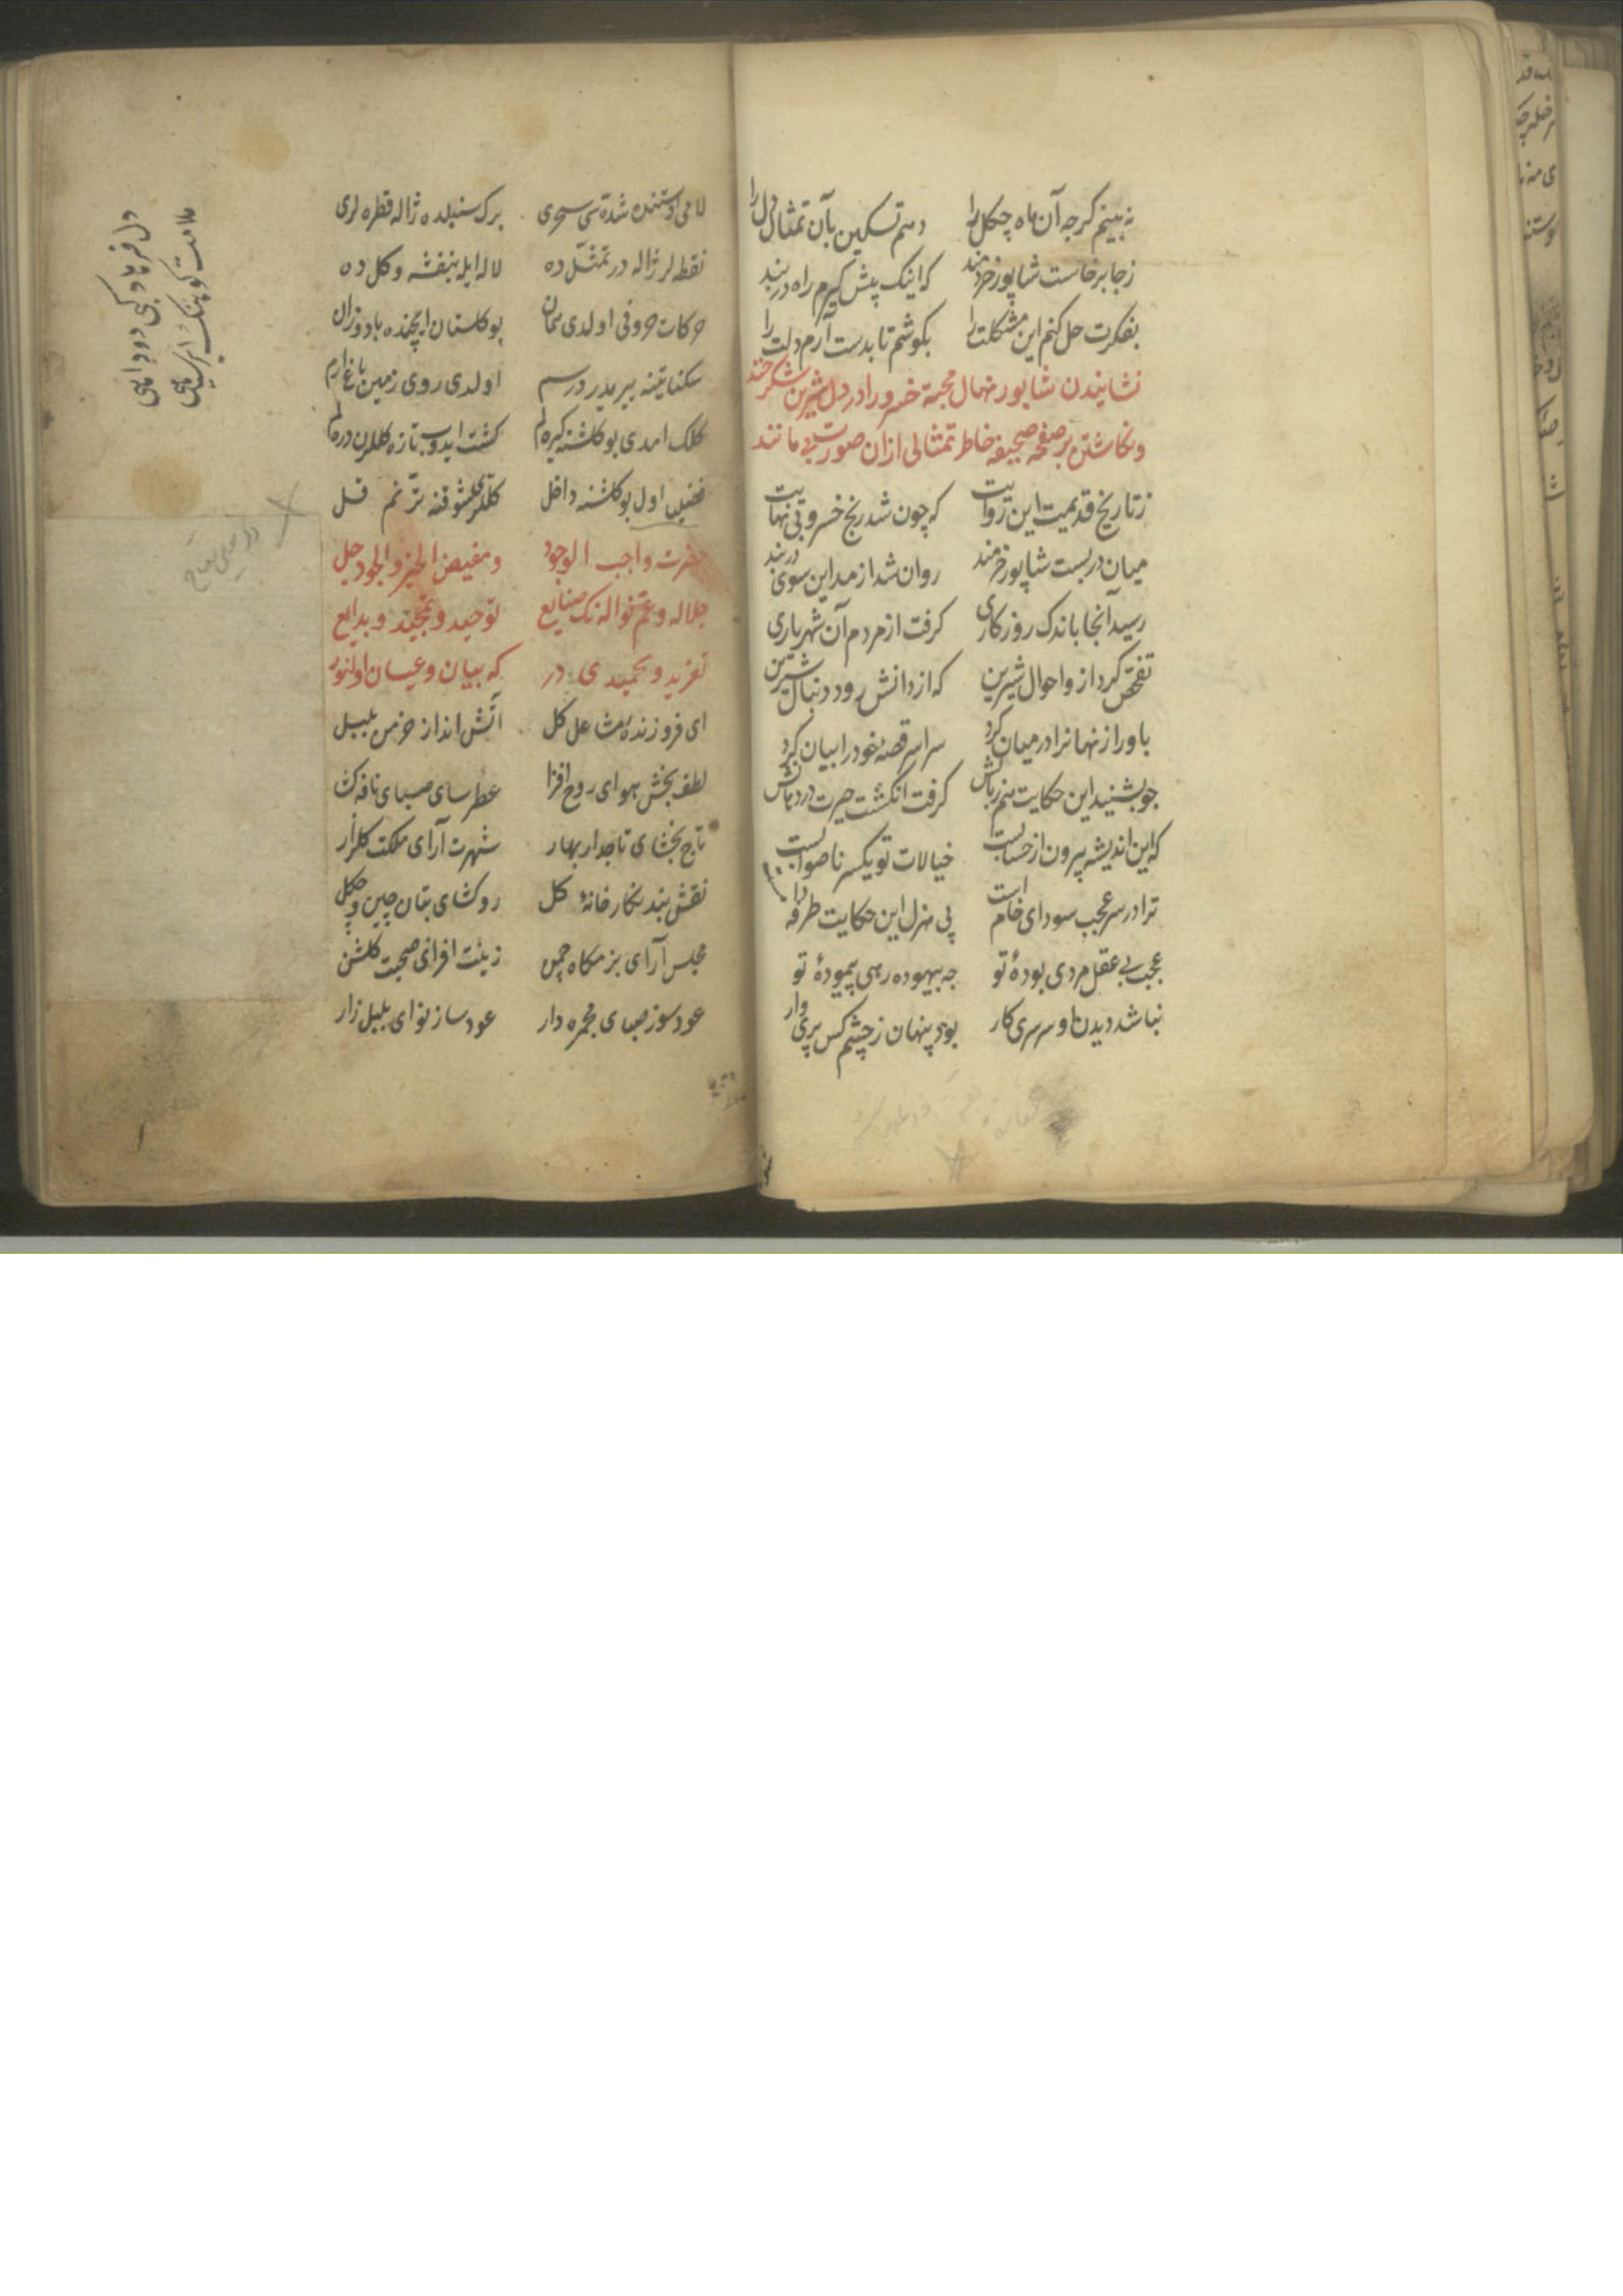 نه بینم کرچه آن ماه چکل را دهم تسکین بآن تمثال دل را
زجا برخاست شاپور خردمند که اینک پیش کیرم راه دربند
بفکرت حل کنم این مشکلت را بکوشم تا بدست آرم دلت را
نشانیدن شاپور نهال محبة خسرو را در دل شیرین شکرخند
ونکاشتن بر صفحه صحیفه خاطر تمثالی ازان صورت بی مانند
زتاریخ قدیمیت این روایت که چون شد رنج خسرو بی نهایت
میان دربست شاپور خردمند روان شد از مداین سوی دربند
رسید آنجا باندک روزکاری کرفت از مردم آن شهریاری
تفحص کرد از واحوال شیرین که از دانش رود دنبال شیرین
باو راز نهانرا درمیان کرد سراسر قصهٔ خود را بیان کرد
چو بشنید این حکایت هم زبانش کرفت انکشت حیرت در دهانش
که این اندیشه بیرون از حسابست خیالات تو یکسر ناصوابست
ترا در سر عجب سودای خام است پی منزل این حکایت طرفه دا
عجب بی عقل مردی بودهٔ تو چه بیهوده رهی پیمودهٔ تو
نباشد دیدن او سرسری کار بود پنهان زچشم کس پری وار
لامی اوستنده شدة سی سحری برک سنبلده ژاله قطره لری
نقطه لر ژاله در تمثل ده لاله ایله بنفشه وکل ده
حرکات حروفی اولدی همان بو کلستان ایچنده باد وزان
سکناتینه بیر بیر درسم اولدی روی زمین باغ ارم
کلک امدی بو کلشنه کیره لم کشت ایدوب تازه کللرن دره لم
فضلیا اول بو کلشنه داخل کللری شوقنه ترنم قل
حضرت واجب الوجود ومفیض الخیر والجود جل
جلاله وعم نواله نک صنایع توحید وتمجید وبدایع
تفرید وتحمیدی در که بیان وعیان اولنور
ای فروزندهٔ مشاعل کل آتش انداز خرمن بلبل
لطف بخش هوای روح افزا عطرسای صبای نافه کشا
تاج بخشای تاجدار بهار شهرت آرای ملکت کلزار
نقش بند نکارخانهٔ کل روکشای بتان چین وچکل
مجلس آرای بزمکاه چمن زینت افزای صحبت کلشن
عود سوز صبای مجمره دار عود ساز نوای بلبل زار